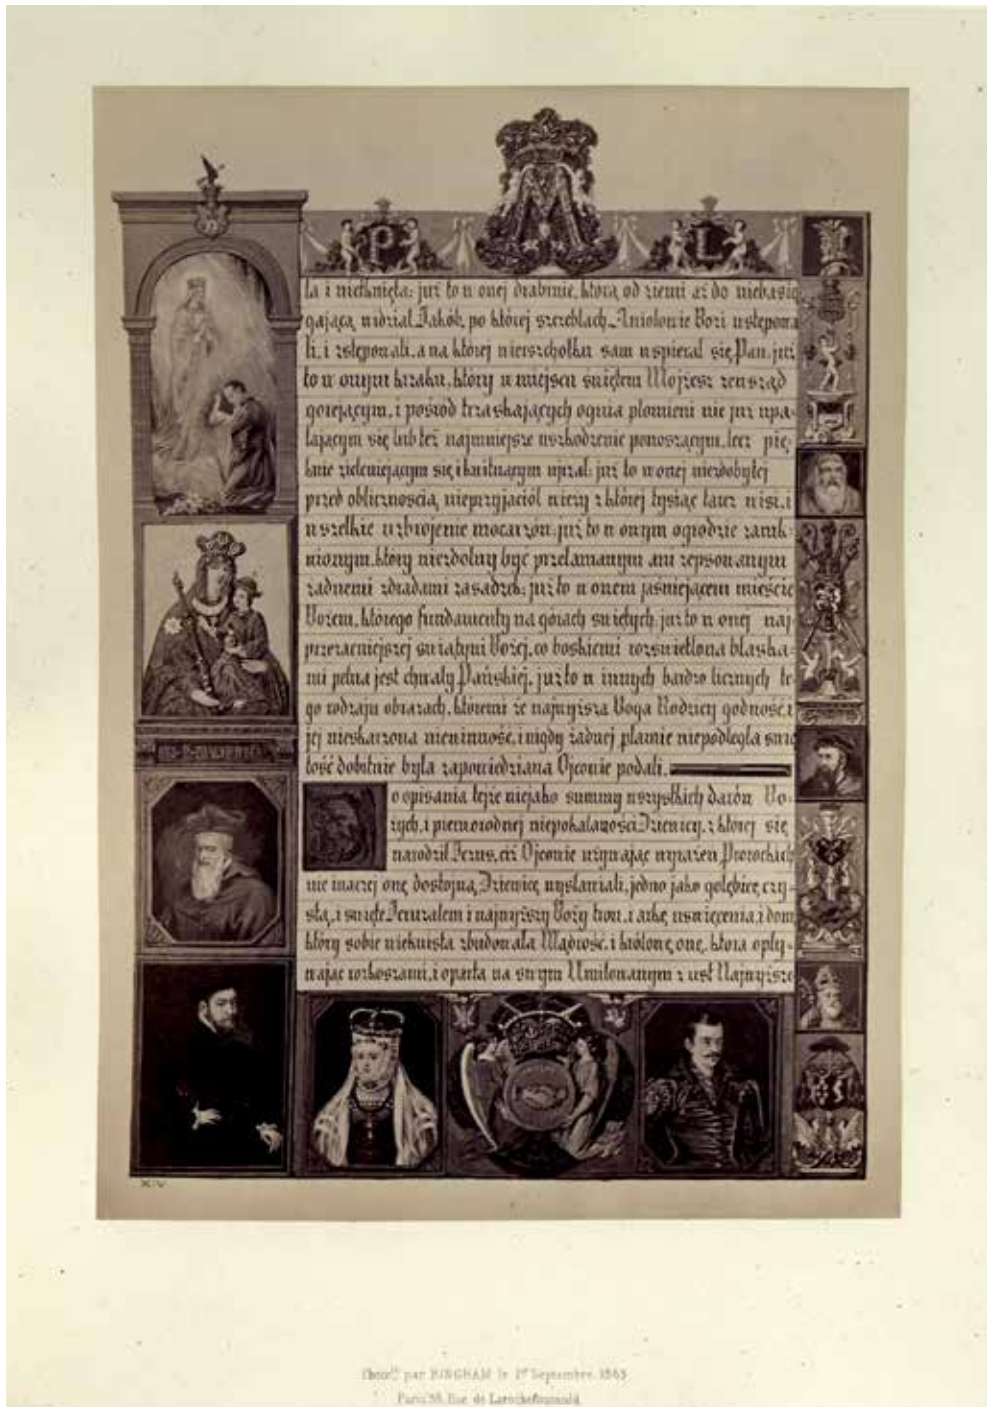 P L
ta i nietknięta; już to w onej drabinie, którą od ziemi aż do nieba się
gającą widział Jakób, po której szczeblach Aniołowie Boży wstępowa
li, i zstępowali, a na której wierzchołku sam wspierał się Pan, już
to w onym krzaku, który w miejscu świętem Mojżesz zewsząd
gorejącym, i pośród trzaskających ognia płomieni nie już upa-
lającym się lub też najmniejsze uszkodzenie ponoszącym, lecz pię-
knie zieleniejącym się i kwitnącym ujrzał; już to w onej niezdobytej
przed oblicznością nieprzyjaciół wieży z której tysiąc tarcz wisi, i
wszelkie uzbrojenie mocarzów; już to w onym ogrodzie zamk-
nionym, który niezdolny być przełamanym ani zepsowanym
żadnemi zdradami zasadzek; już to w onem jaśniejącem mieście
Bożem, którego fundamenty na górach świętych, już to w onej naj-
przezacniejszej świątyni Bożej, co boskiemi rozświetlona blaska-
mi pełna jest chwały Pańskiej, już to w innych bardzo licznych te-
go rodzaju obrazach, któremi że najwyższa Boga Rodzicy godność, i
jej nieskażona niewinność, i nigdy żadnej plamie niepodległa świę
tość dobitnie była zapowiedziana Ojcowie podali.
Do opisania tejże niejako summy wszystkich darów Bo-
żych, i pierworodnej niepokalaności Dziewicy, z której się
narodził Jezus, ciż Ojcowie używając wyrażeń Prorockich
nie inaczej onę dostojną Dziewicę wysławiali, jedno jako gołębicę czy-
stą, i święte Jeruzalem i najwyższy Boży tron, i arkę uświęcenia, i dom
który sobie wiekuista zbudowała Mądrość, i królowę onę, która opły-
wając rozkoszami, i oparta na swym Umiłowanym z ust Najwyższe
XIV
par BINGHAM le 1er Septembre 1863
Paris 58, Rue de Larochefoucauld